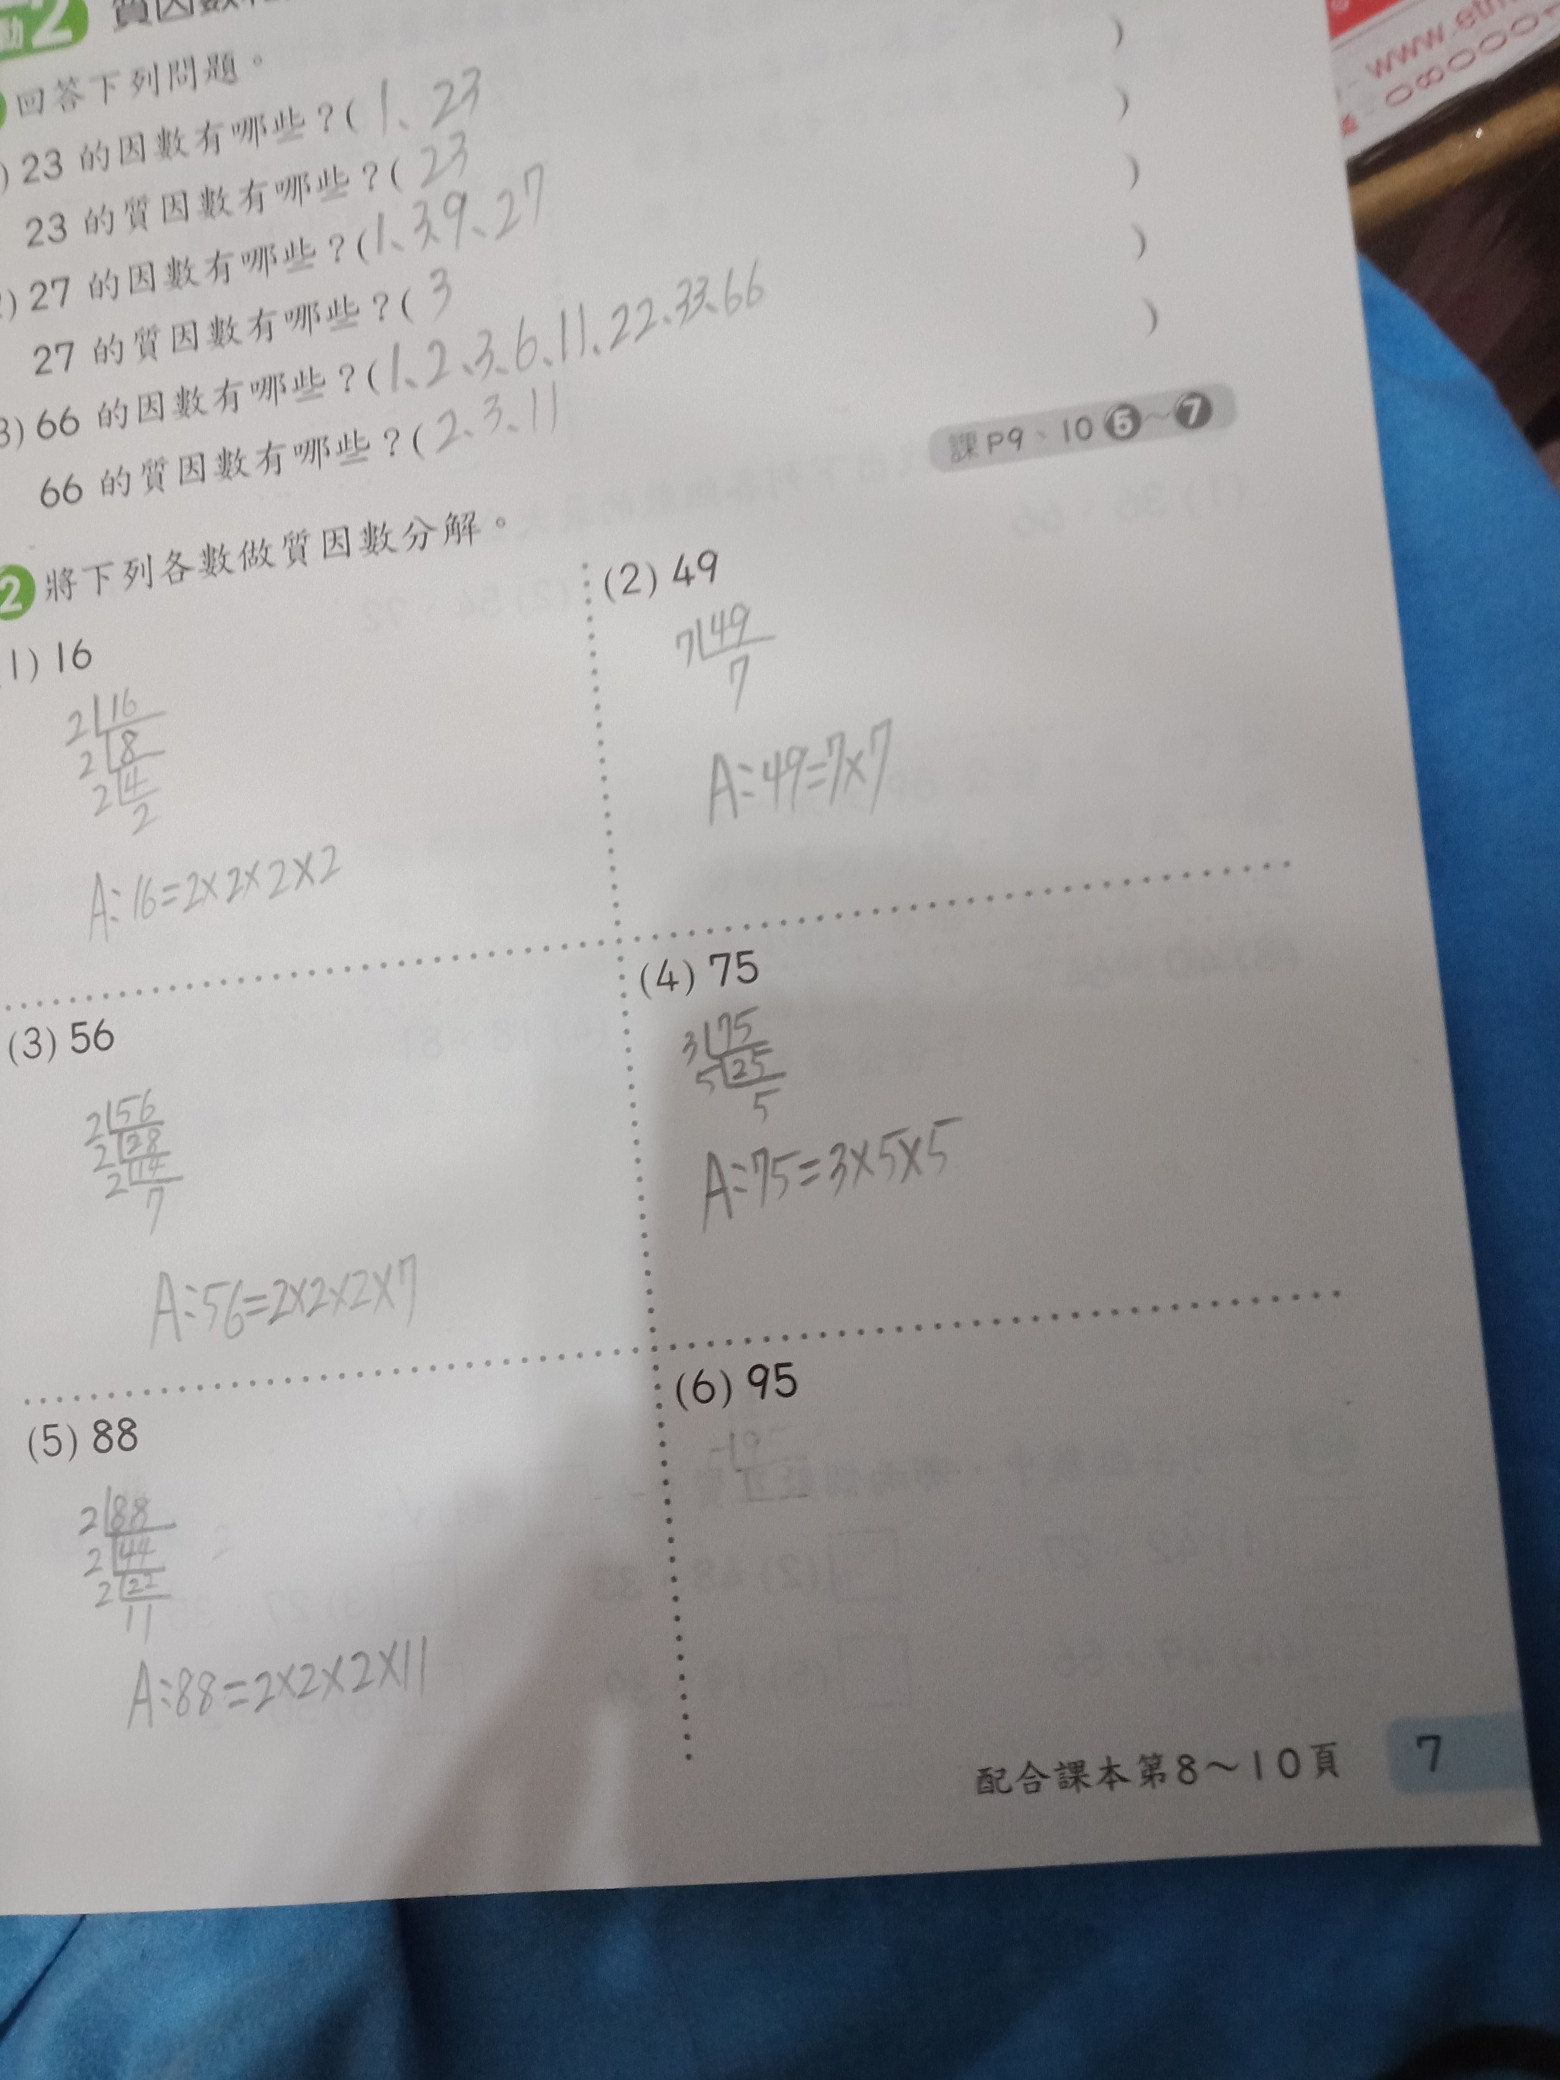 2
回答下列問題。
) 23 的因數有哪些？( 1、23 )
23 的質因數有哪些？( 23 )
) 27 的因數有哪些？(1、3、9、27 )
27 的質因數有哪些？( 3 )
3) 66 的因數有哪些？(1、2、3、6、11、22、33、66 )
66 的質因數有哪些？( 2、3、11
課P9、10 5～7
2 將下列各數做質因數分解。
1) 16
2 16
2 8
2 4
2
A:16=2×2×2×2
(2) 49
7 49
7
A:49=7×7
(3) 56
2 56
2 28
2 14
7
A:56=2×2×2×7
(4) 75
3 75
5 25
5
A:75=3×5×5
(5) 88
2 88
2 44
2 22
11
A:88=2×2×2×11
(6) 95
配合課本第8～10頁 7